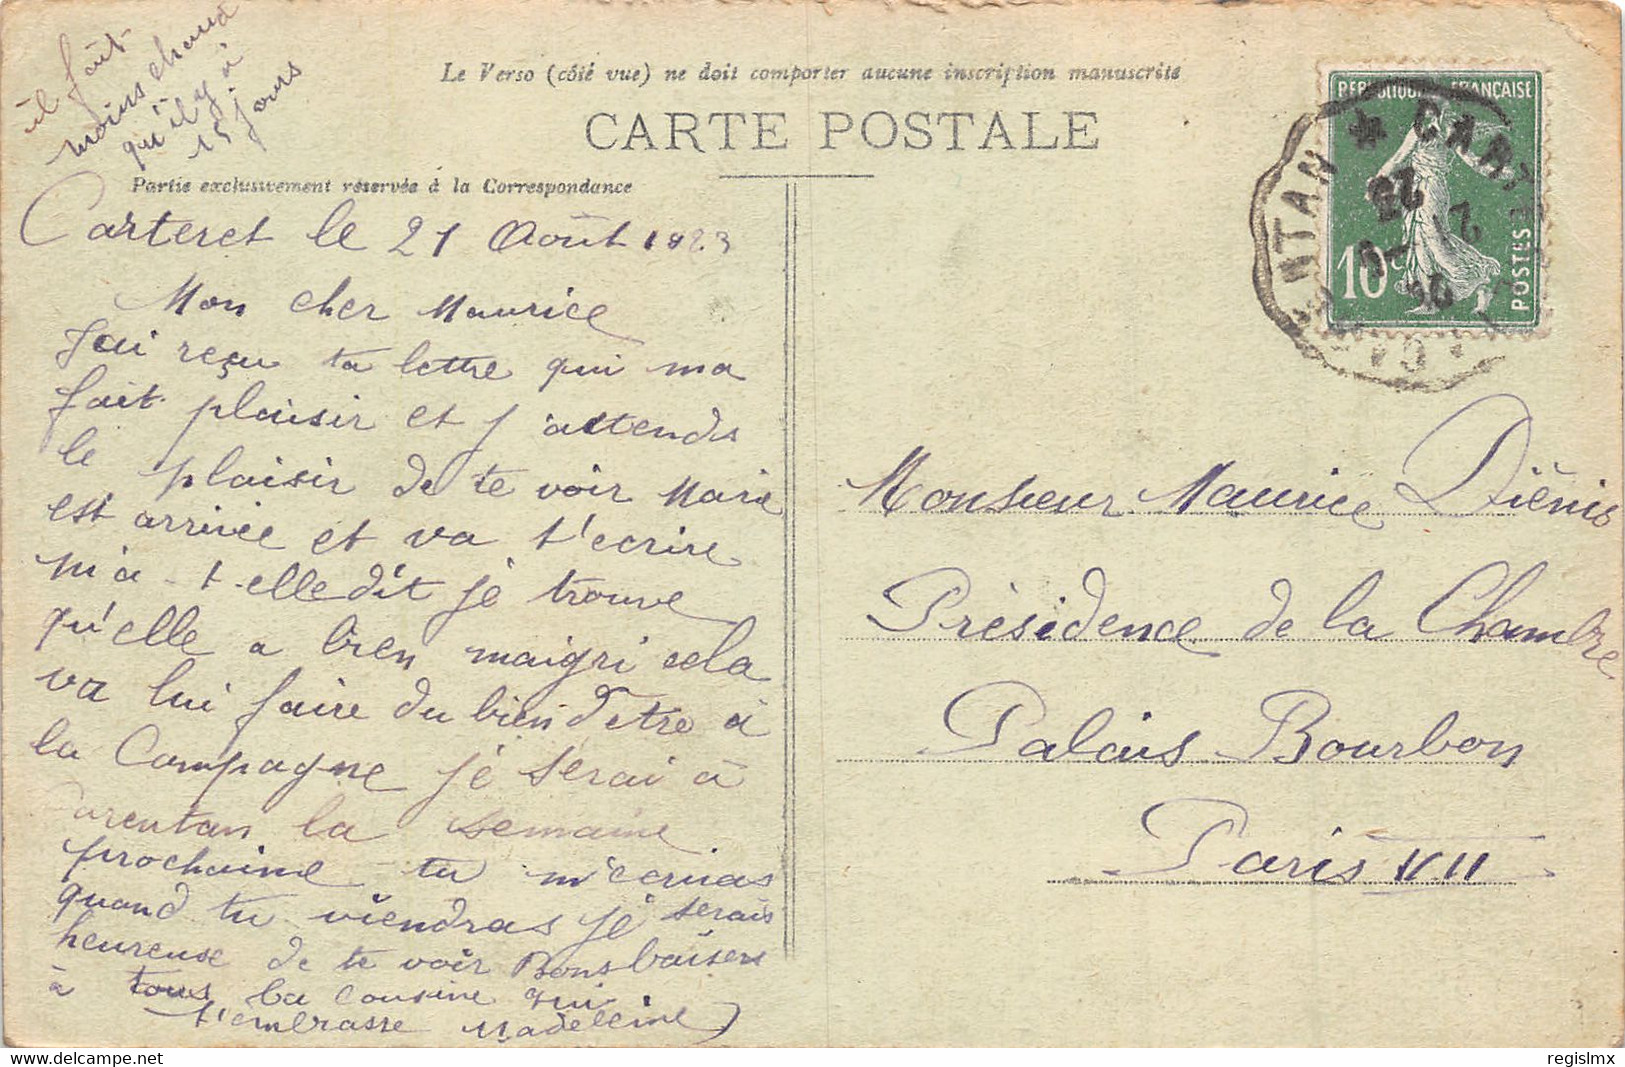 il fait
moins chaud
qu'il y a
15 jours
Le Verso (côté vue) ne doit comporter aucune inscription manuscrite
CARTE POSTALE
Partie exclusivement réservée à la Correspondance
REPUBLIQUE FRANÇAISE
10c
POSTES
Carteret le 21 Août 1923
Mon cher Maurice
J'ai reçu ta lettre qui ma
fait plaisir et j'attends
le plaisir de te voir Marie
est arrivée et va t'ecrire
m'a-t-elle dit je trouve
qu'elle a bien maigri cela
va lui faire du bien d'etre à
la Campagne je serai à
Carentan la semaine
prochaine tu m'ecrias
quand tu viendras je serais
heureuse de te voir Bons baisers
à tous ta cousine qui
t'embrasse Madeleine
Monsieur Maurice Diénis
Présidence de la Chambre
Palais Bourbon
Paris VII
regislmx